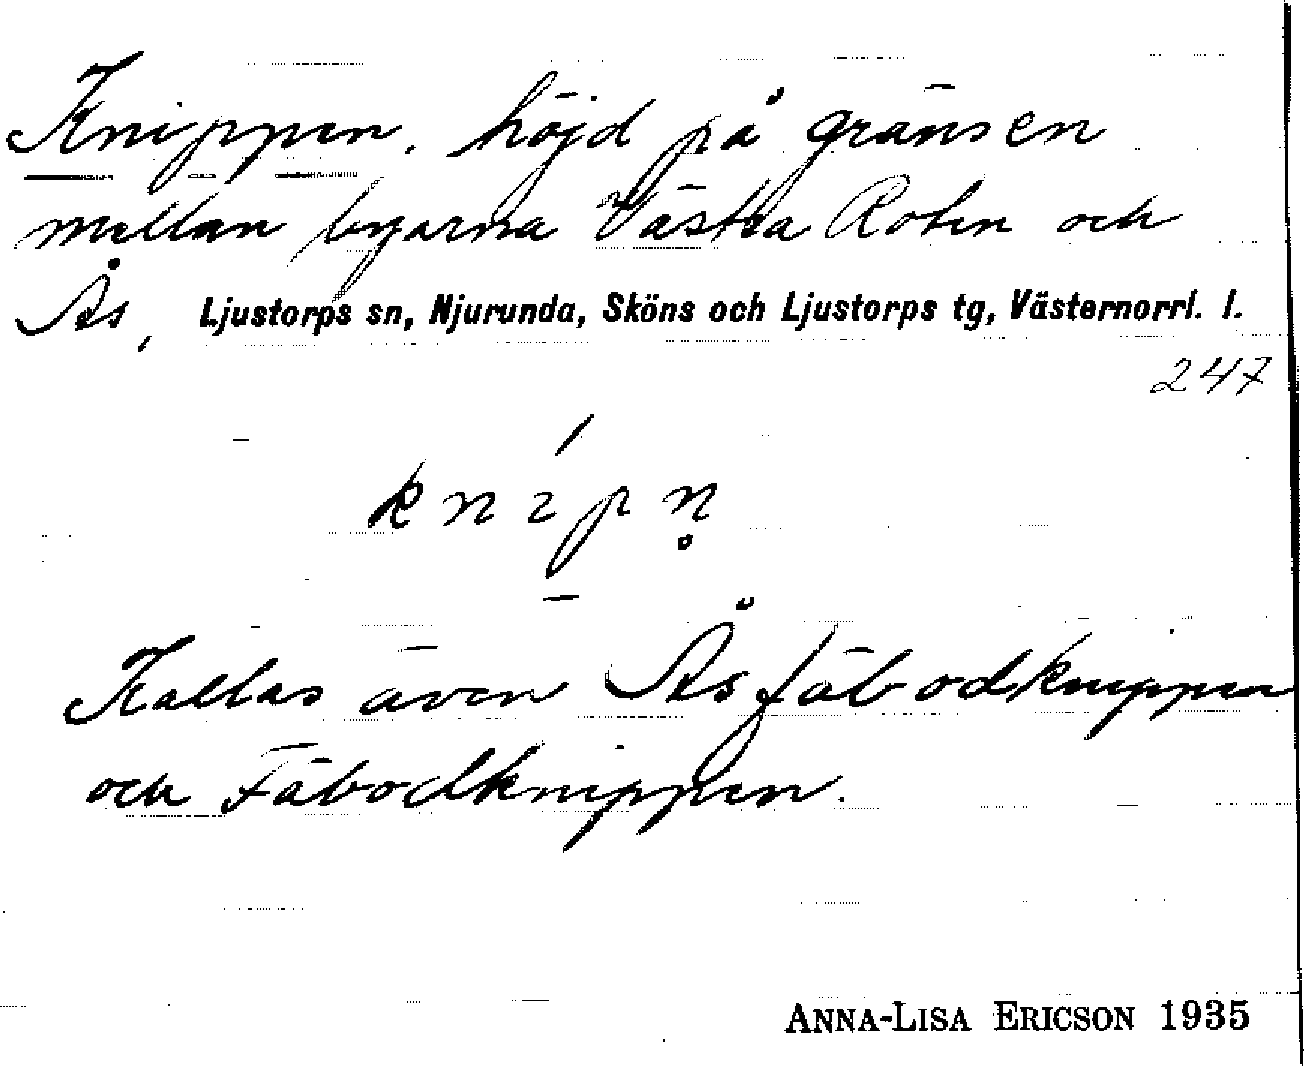 Knippen, höjd på gränsen
mellan byarna Västra Roten och
Ås, Ljustorps sn, Njurunda, Sköns och Ljustorps tg, Västernorrl. l.
247
knípn̥
Kallas även Åsfäbodknippen
och Fäbodknippen.
ANNA-LISA ERICSON 1935